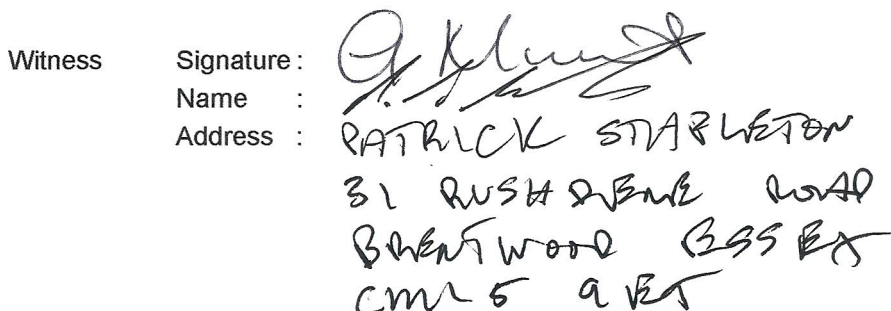 Witness Signature :
Name :
Address : PATRICK STAPLETON
31 RUSHDENE ROAD
BRENTWOOD ESSEX
CM15 9ET